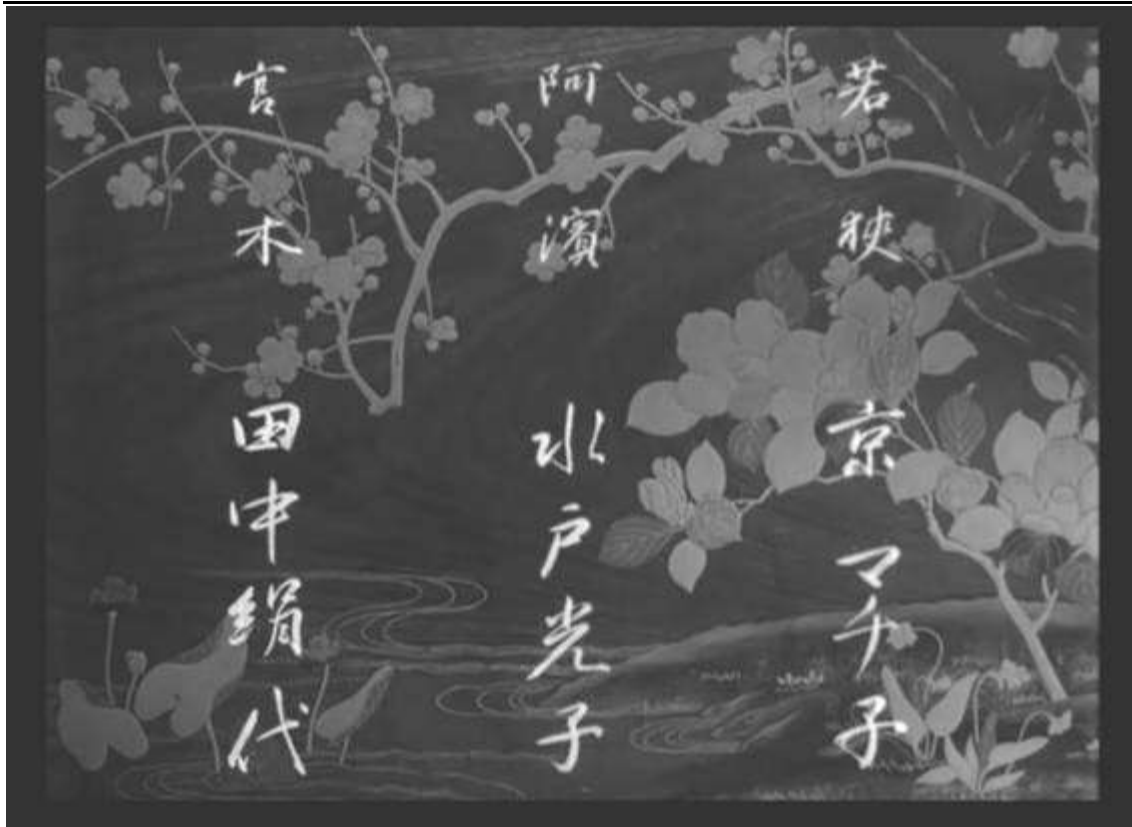 若狭 京マチ子
阿濱 水戸光子
宮木 田中絹代